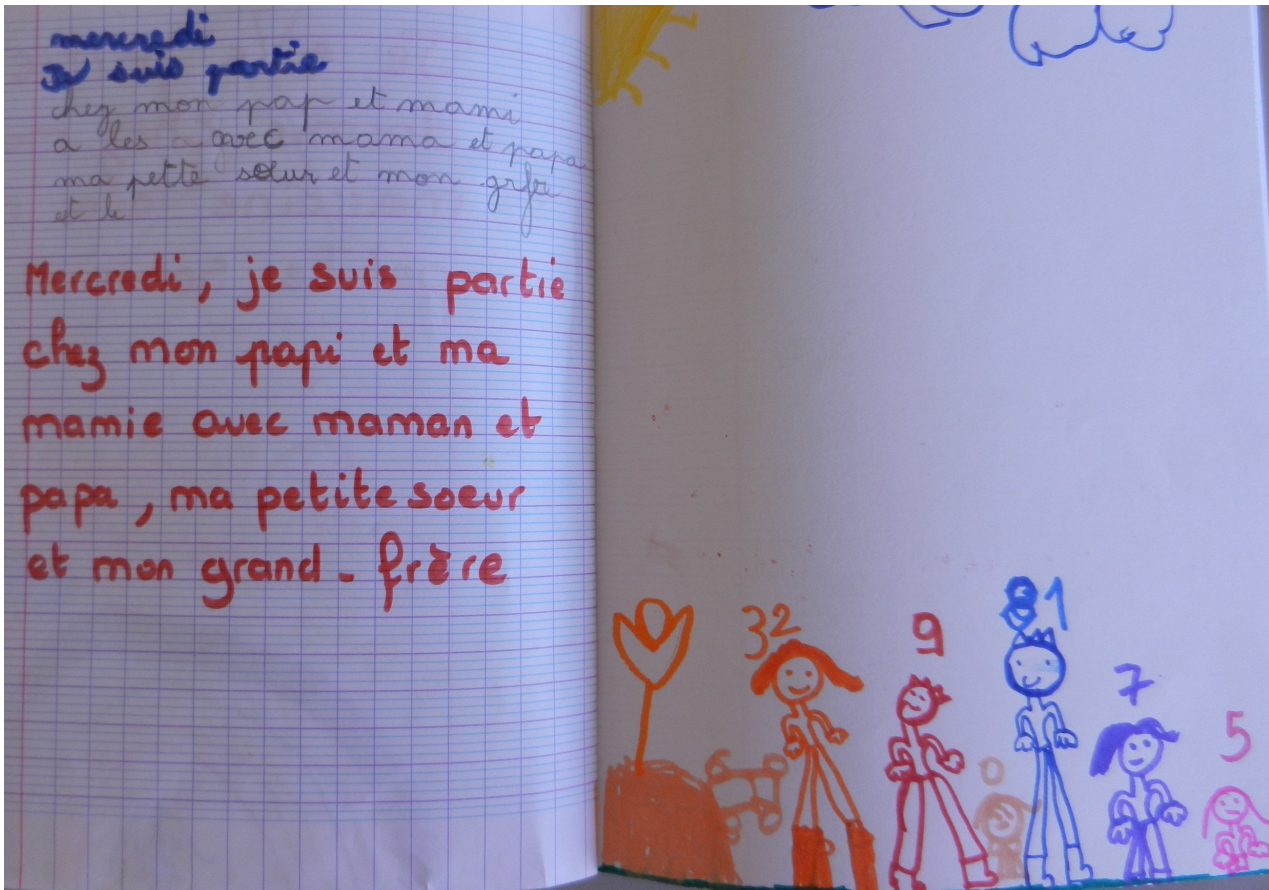 mercredi
Je suis partie
chez mon pap et mami
a les a avec mama et papa
ma pette sœur et mon grfre
et le
Mercredi, je suis partie
chez mon papi et ma
mamie avec maman et
papa, ma petite soeur
et mon grand-frère
32 9 81 7 5 0